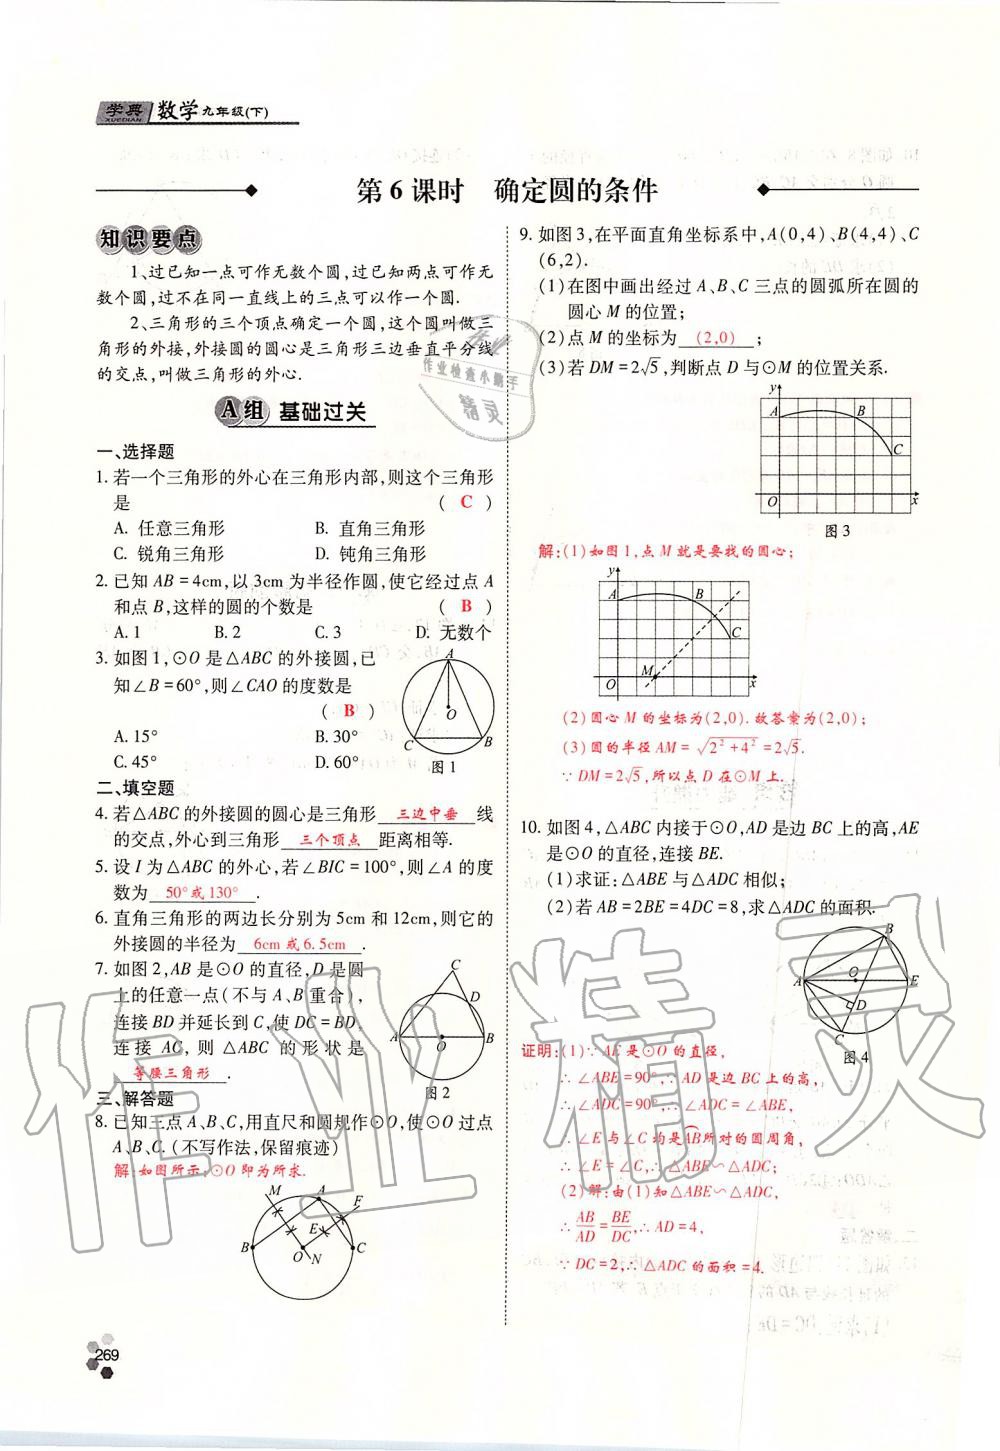 学典
XUEDIAN
数学九年级(下)
第6课时 确定圆的条件
知识要点
1、过已知一点可作无数个圆,过已知两点可作无
数个圆,过不在同一直线上的三点可以作一个圆.
2、三角形的三个顶点确定一个圆,这个圆叫做三
角形的外接,外接圆的圆心是三角形三边垂直平分线
的交点,叫做三角形的外心.
A组 基础过关
一、选择题
1. 若一个三角形的外心在三角形内部,则这个三角形
是 ( C )
A. 任意三角形 B. 直角三角形
C. 锐角三角形 D. 钝角三角形
2. 已知 AB=4cm,以 3cm 为半径作圆,使它经过点 A
和点 B,这样的圆的个数是 ( B )
A. 1 B. 2 C. 3 D. 无数个
3. 如图 1,⊙O 是△ABC 的外接圆,已
知∠B=60°,则∠CAO 的度数是
( B )
A. 15° B. 30°
C. 45° D. 60°
A
O
C B
图 1
二、填空题
4. 若△ABC 的外接圆的圆心是三角形 三边中垂 线
的交点,外心到三角形 三个顶点 距离相等.
5. 设 I 为△ABC 的外心,若∠BIC=100°,则∠A 的度
数为 50°或130° .
6. 直角三角形的两边长分别为 5cm 和 12cm,则它的
外接圆的半径为 6cm 或 6.5cm .
7. 如图 2,AB 是⊙O 的直径,D 是圆
上的任意一点(不与 A、B 重合),
连接 BD 并延长到 C,使 DC=BD,
连接 AC, 则 △ABC 的形状是
等腰三角形 .
C
D
A O B
图 2
三、解答题
8. 已知三点 A、B、C,用直尺和圆规作⊙O,使⊙O 过点
A、B、C.(不写作法,保留痕迹)
解:如图所示;⊙O 即为所求.
M A F
E
B O N C
269
9. 如图 3,在平面直角坐标系中,A(0,4)、B(4,4)、C
(6,2).
(1)在图中画出经过 A、B、C 三点的圆弧所在圆的
圆心 M 的位置;
(2)点 M 的坐标为 (2,0) ;
(3)若 DM=2√5,判断点 D 与⊙M 的位置关系.
y
A B
C
O x
图 3
解:(1)如图 1,点 M 就是要找的圆心;
y
A B
C
M
O x
(2)圆心 M 的坐标为(2,0).故答案为(2,0);
(3)圆的半径 AM=√(2²+4²)=2√5.
∵DM=2√5,所以点 D 在⊙M 上.
10. 如图 4,△ABC 内接于⊙O,AD 是边 BC 上的高,AE
是⊙O 的直径,连接 BE.
(1)求证:△ABE 与△ADC 相似;
(2)若 AB=2BE=4DC=8,求△ADC 的面积.
B
A O E
D
C
图 4
证明:(1)∵AE 是⊙O 的直径,
∴∠ABE=90°,∵AD 是边 BC 上的高,
∴∠ADC=90°,∴∠ADC=∠ABE,
∵∠E 与∠C 均是AB所对的圆周角,
∴∠E=∠C,∴△ABE∽△ADC;
(2)解:由(1)知△ABE∽△ADC,
∴AB/AD=BE/DC,∴AD=4,
∵DC=2,∴△ADC 的面积=4.
作业精灵
作业检查小帮手